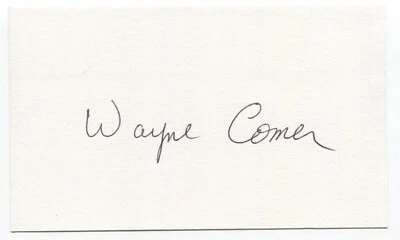 Wayne Comer